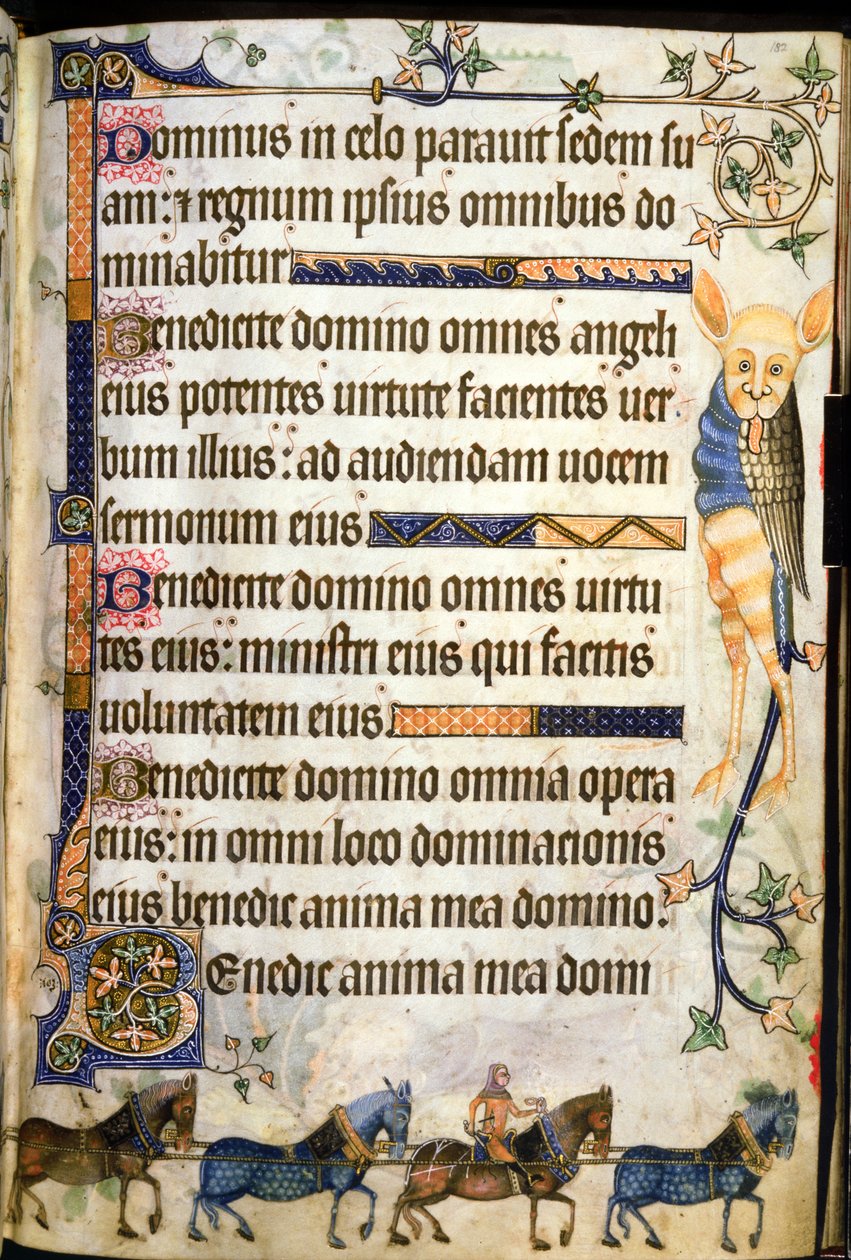 182
Dominus in celo parauit sedem su
am: ⁊ regnum ipsius omnibus do
minabitur
Benedicite domino omnes angeli
eius potentes uirtute facientes uer
bum illius: ad audiendam uocem
sermonum eius.
Benedicite domino omnes uirtu
tes eius: ministri eius qui facitis
uoluntatem eius.
Benedicite domino omnia opera
eius: in omni loco dominacionis
eius benedic anima mea domino.
BEnedic anima mea domi